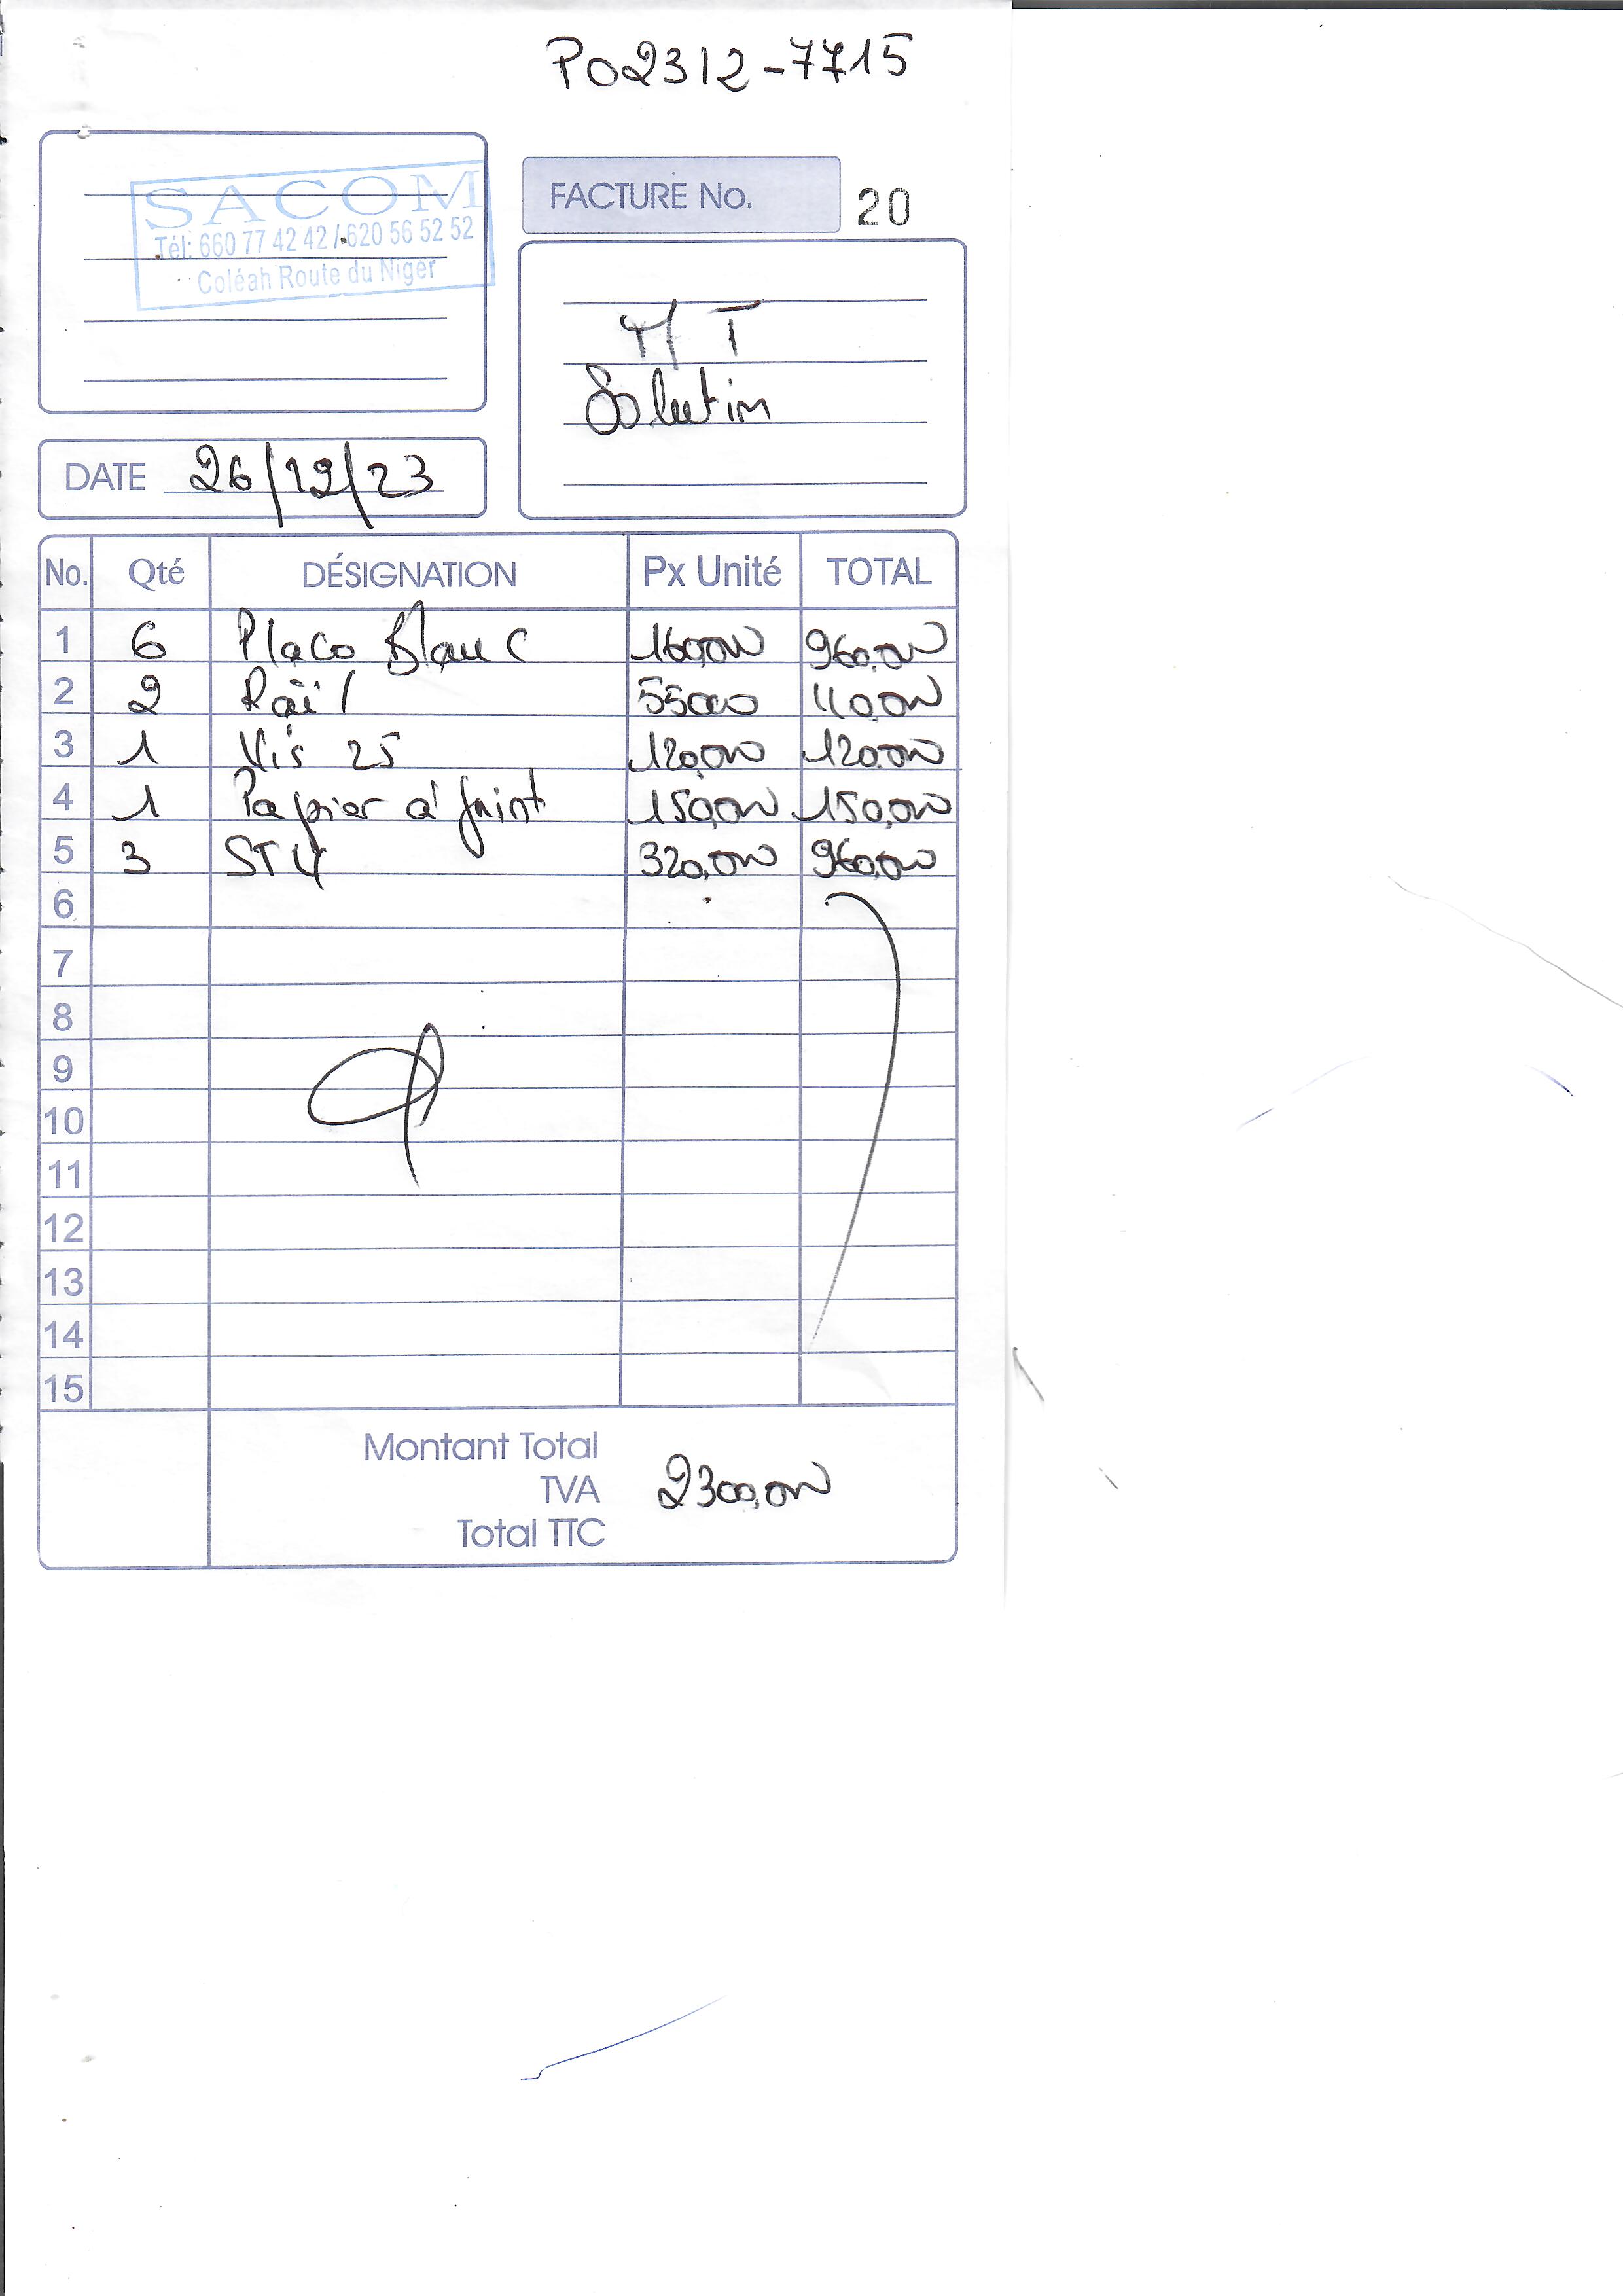 PO2312-7715
SACOM
Tél: 660 77 42 42 / 620 56 52 52
Coléah Route du Niger
FACTURE No. 20
MT
Solution
DATE 26/12/23
No. Qté DÉSIGNATION Px Unité TOTAL
1 6 Placo Blanc 160,000 960,000
2 2 Raïl 55000 110,000
3 1 Vis 25 120,000 120,000
4 1 Papier à joint 150,000 150,000
5 3 ST4 320,000 960,000
6
7
8
9
10
11
12
13
14
15
Montant Total
TVA 2300,000
Total TTC